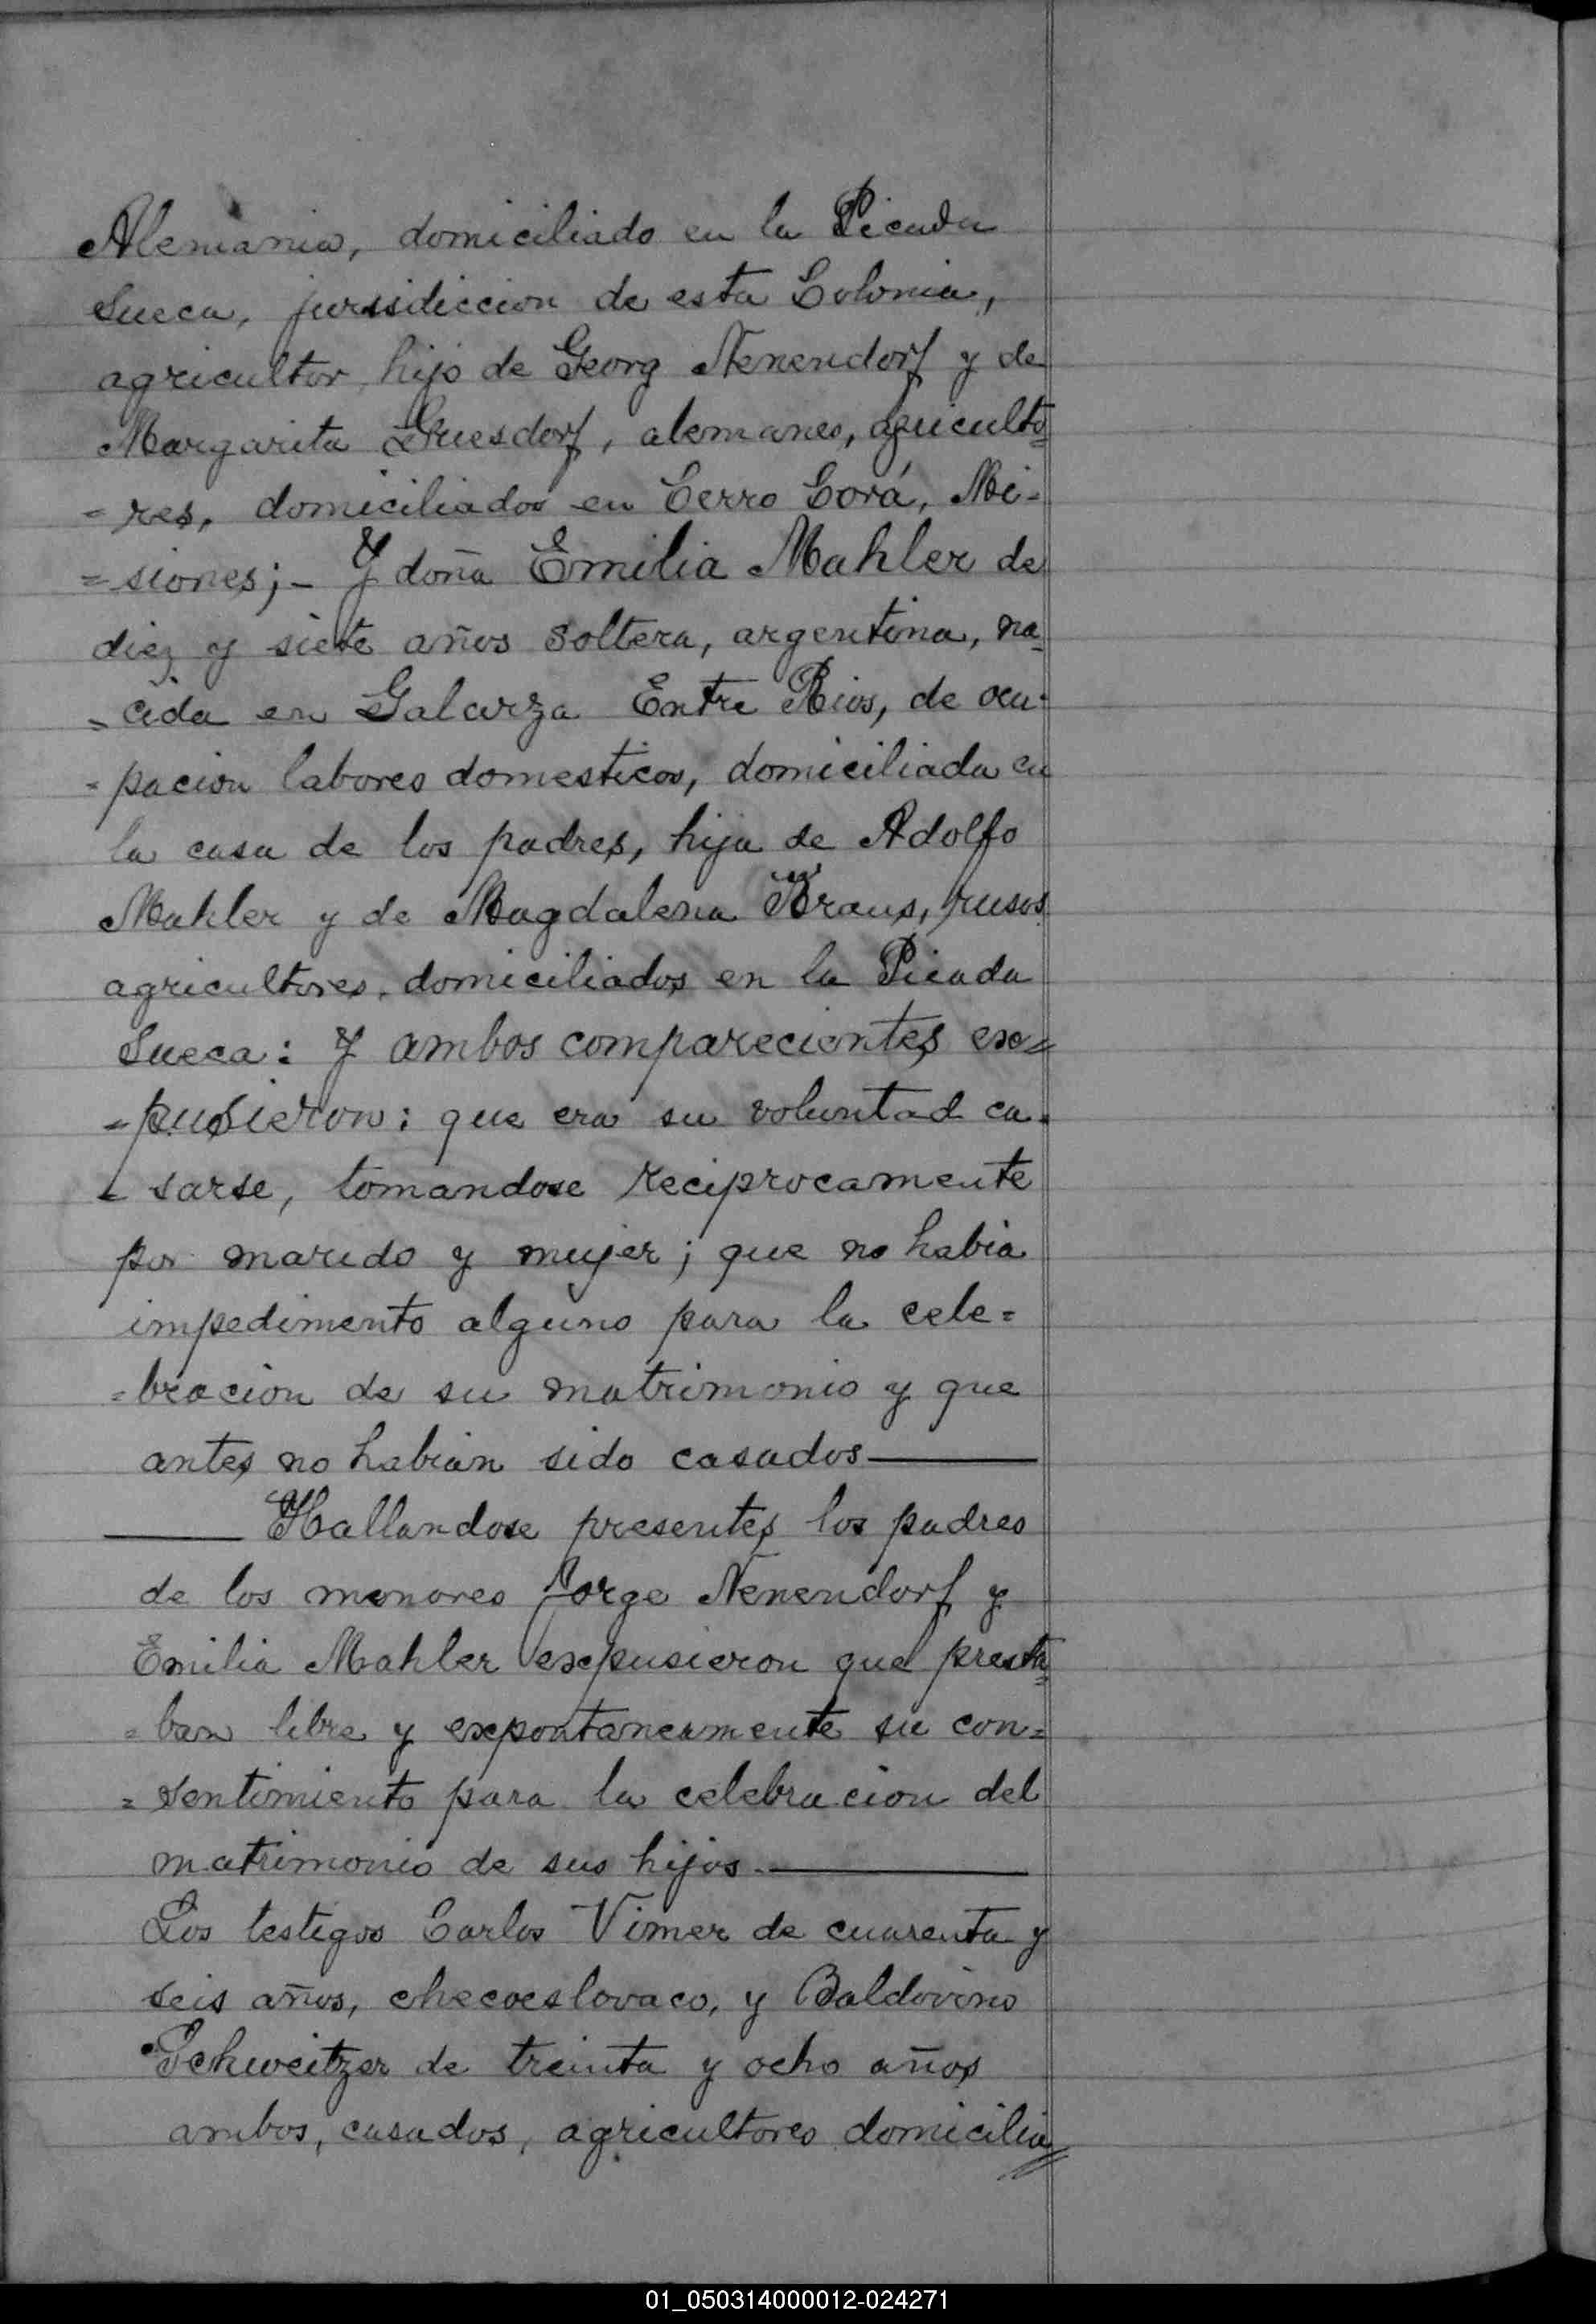 Alemania, domiciliado en la Picada
Sueca, jurisidiccion de esta Colonia,
agricultor, hijo de Georg Nenendorf y de
Margarita Gruesdorf, alemanes, agriculto=
= res, domiciliados en Cerro Corá, Mi-
= siones; - Y doña Emilia Mahler de
diez y siete años soltera, argentina, na=
= cida en Galarza Entre Rios, de ocu-
- pacion labores domesticos, domiciliada en
la casa de los padres, hija de Adolfo
Mahler y de Magdalena Kraus, rusos
agricultores, domiciliados en la Picada
Sueca: Y ambos comparecientes ex=
- pusieron: que era su voluntad ca-
- sarse, tomandose reciprocamente
por marido y mujer; que no habia
impedimento alguno para la cele=
= bracion de su matrimonio y que
antes no habian sido casados
Hallandose presentes los padres
de los menores Jorge Nenendorf y
Emilia Mahler expusieron que presta=
= ban libre y expontaneamente su con=
= sentimiento para la celebracion del
matrimonio de sus hijos.
Los testigos Carlos Vimer de cuarenta y
seis años, checoeslovaco, y Baldovino
Schweitzer de treinta y ocho años
ambos, casados, agricultores domicilia=
01_050314000012-024271